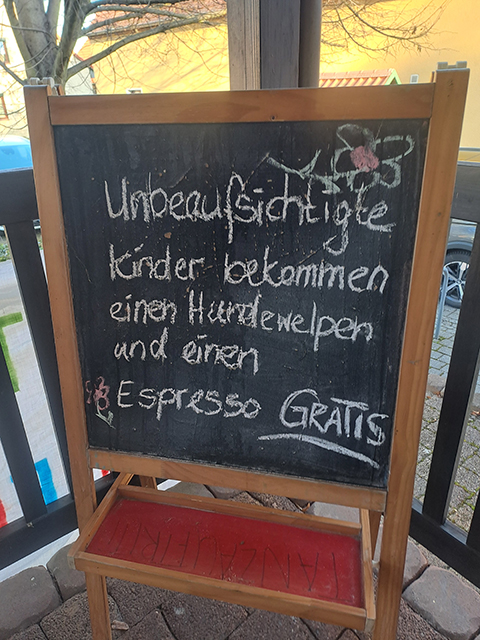 Unbeaufsichtigte
Kinder bekommen
einen Hundewelpen
und einen
Espresso GRATIS